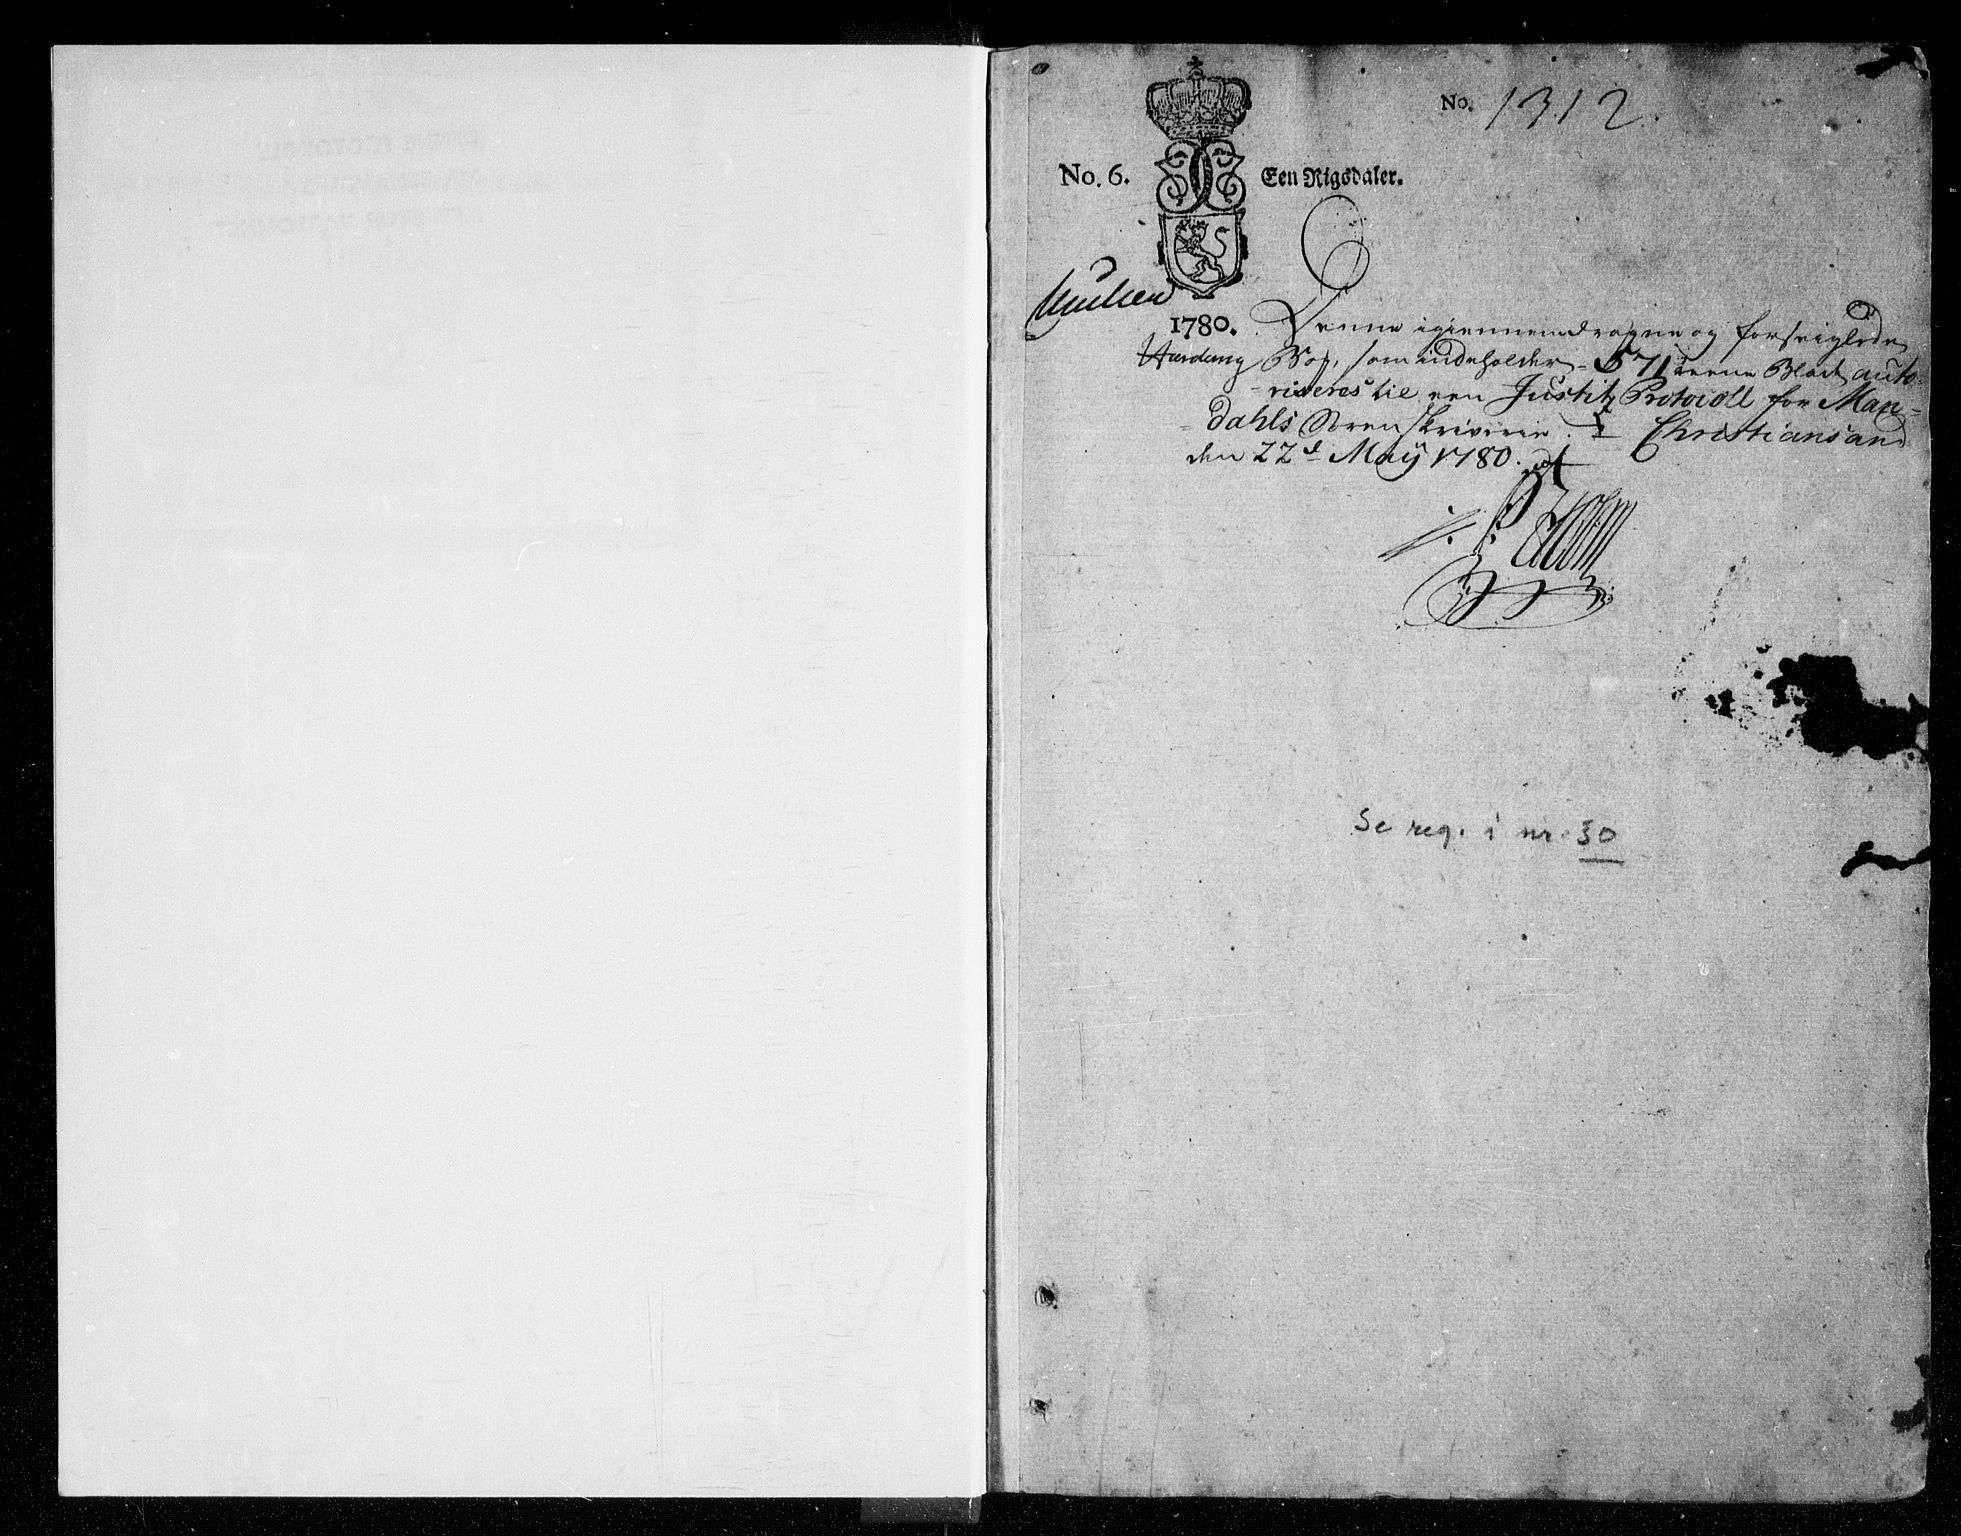 No. 1312.
No. 6. Een Rigsdaler.
1780. Denne igiennemdragne og forseiglede
Bog, som indeholder 571 reene Blade, auto-
-riseres til een Justitz Protocoll for Man-
-dahls Sorenskriverie. Christiansand
den 22d May 1780.
Se reg. i nr. 30